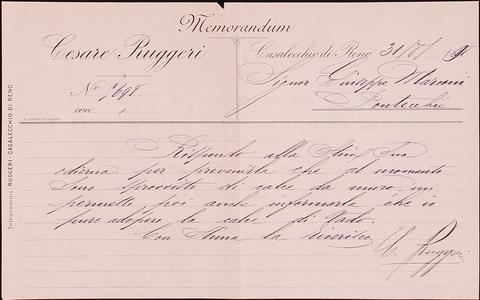 Memorandum
Cesare Ruggeri
Casalecchio di Reno 31/8/
No 7698
con
Signor Giuseppe Marconi
Pontecchio
Telegrammi: RUGGERI-CASALECCHIO DI RENO
Rispondo alla Stim. Sua
odierna per prevenirla che al momento
sono sprovvisto di calce da muro; mi
permetto poi anche informarla che io
pure adopero la calce di Vado.
Con stima la riverisco
C. Ruggeri